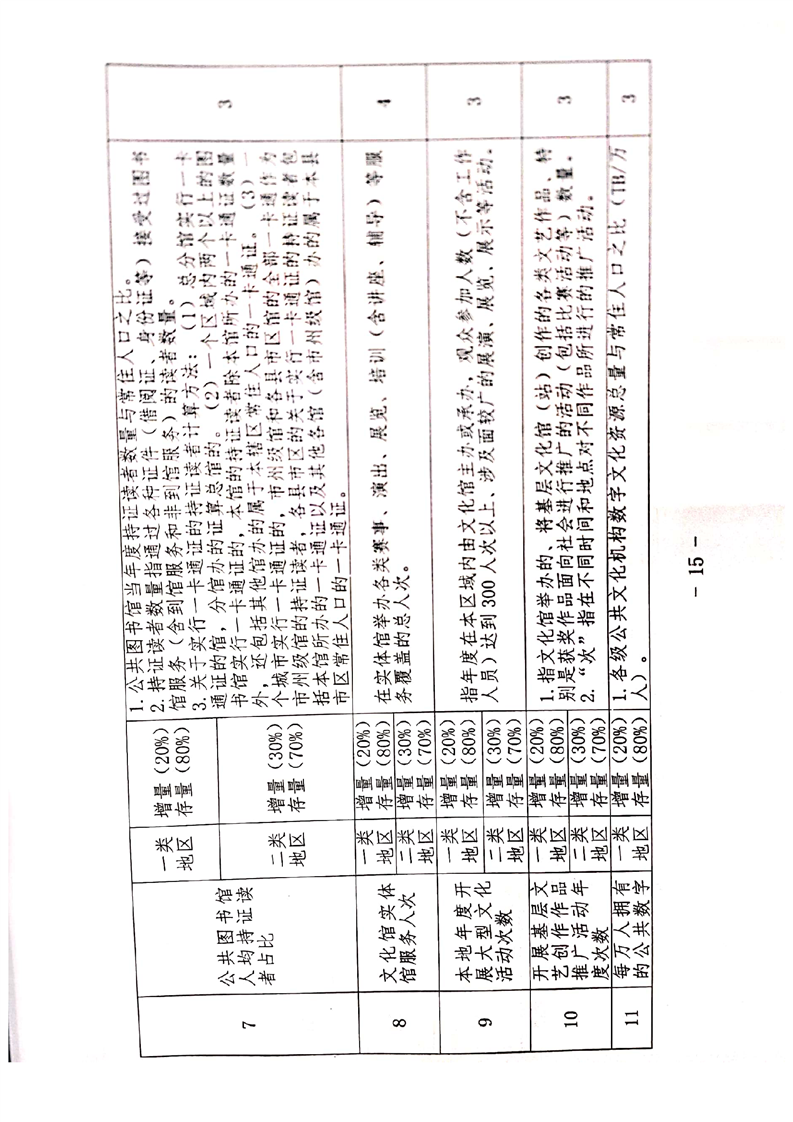 7
公共图书馆
人均持证读
者占比
一类
地区
增量（20%）
存量（80%）
二类
地区
增量（30%）
存量（70%）
1. 公共图书馆当年度持证读者数量与常住人口之比。
2. 持证读者数量指通过各种证件（借阅证、身份证等）接受过图书
馆服务（含到馆服务和非到馆服务）的读者数量。
3. 关于实行一卡通证的持证读者计算方法：（1）总分馆实行一卡
通证的馆，分馆办的证算总馆的。（2）一个区域内两个以上的图
书馆实行一卡通证的，本馆的持证读者除本馆所办的一卡通证数量
外，还包括其他馆办的属于本辖区常住人口的一卡通证。（3）一
个城市实行一卡通证的，市州级馆和各县市区馆的全部一卡通作为
市州级馆的持证读者，各县市区的关于实行一卡通证的持证读者包
括本馆所办的一卡通证以及其他各馆（含市州级馆）办的属于本县
市区常住人口的一卡通证。
3
8
文化馆实体
馆服务人次
一类
地区
增量（20%）
存量（80%）
二类
地区
增量（30%）
存量（70%）
在实体馆举办各类赛事、演出、展览、培训（含讲座、辅导）等服
务覆盖的总人次。
4
9
本地年度开
展大型文化
活动次数
一类
地区
增量（20%）
存量（80%）
二类
地区
增量（30%）
存量（70%）
指年度在本区域内由文化馆主办或承办，观众参加人数（不含工作
人员）达到 300 人次以上、涉及面较广的展演、展览、展示等活动。
3
10
开展基层文
艺创作作品
推广活动年
度次数
一类
地区
增量（20%）
存量（80%）
二类
地区
增量（30%）
存量（70%）
1. 指文化馆举办的、将基层文化馆（站）创作的各类文艺作品、特
别是获奖作品面向社会进行推广的活动（包括比赛活动等）数量。
2. “次”指在不同时间和地点对不同作品所进行的推广活动。
3
11
每万人拥有
的公共数字
一类
地区
增量（20%）
存量（80%）
1. 各级公共文化机构数字文化资源总量与常住人口之比（TB/万
人）。
3
- 15 -